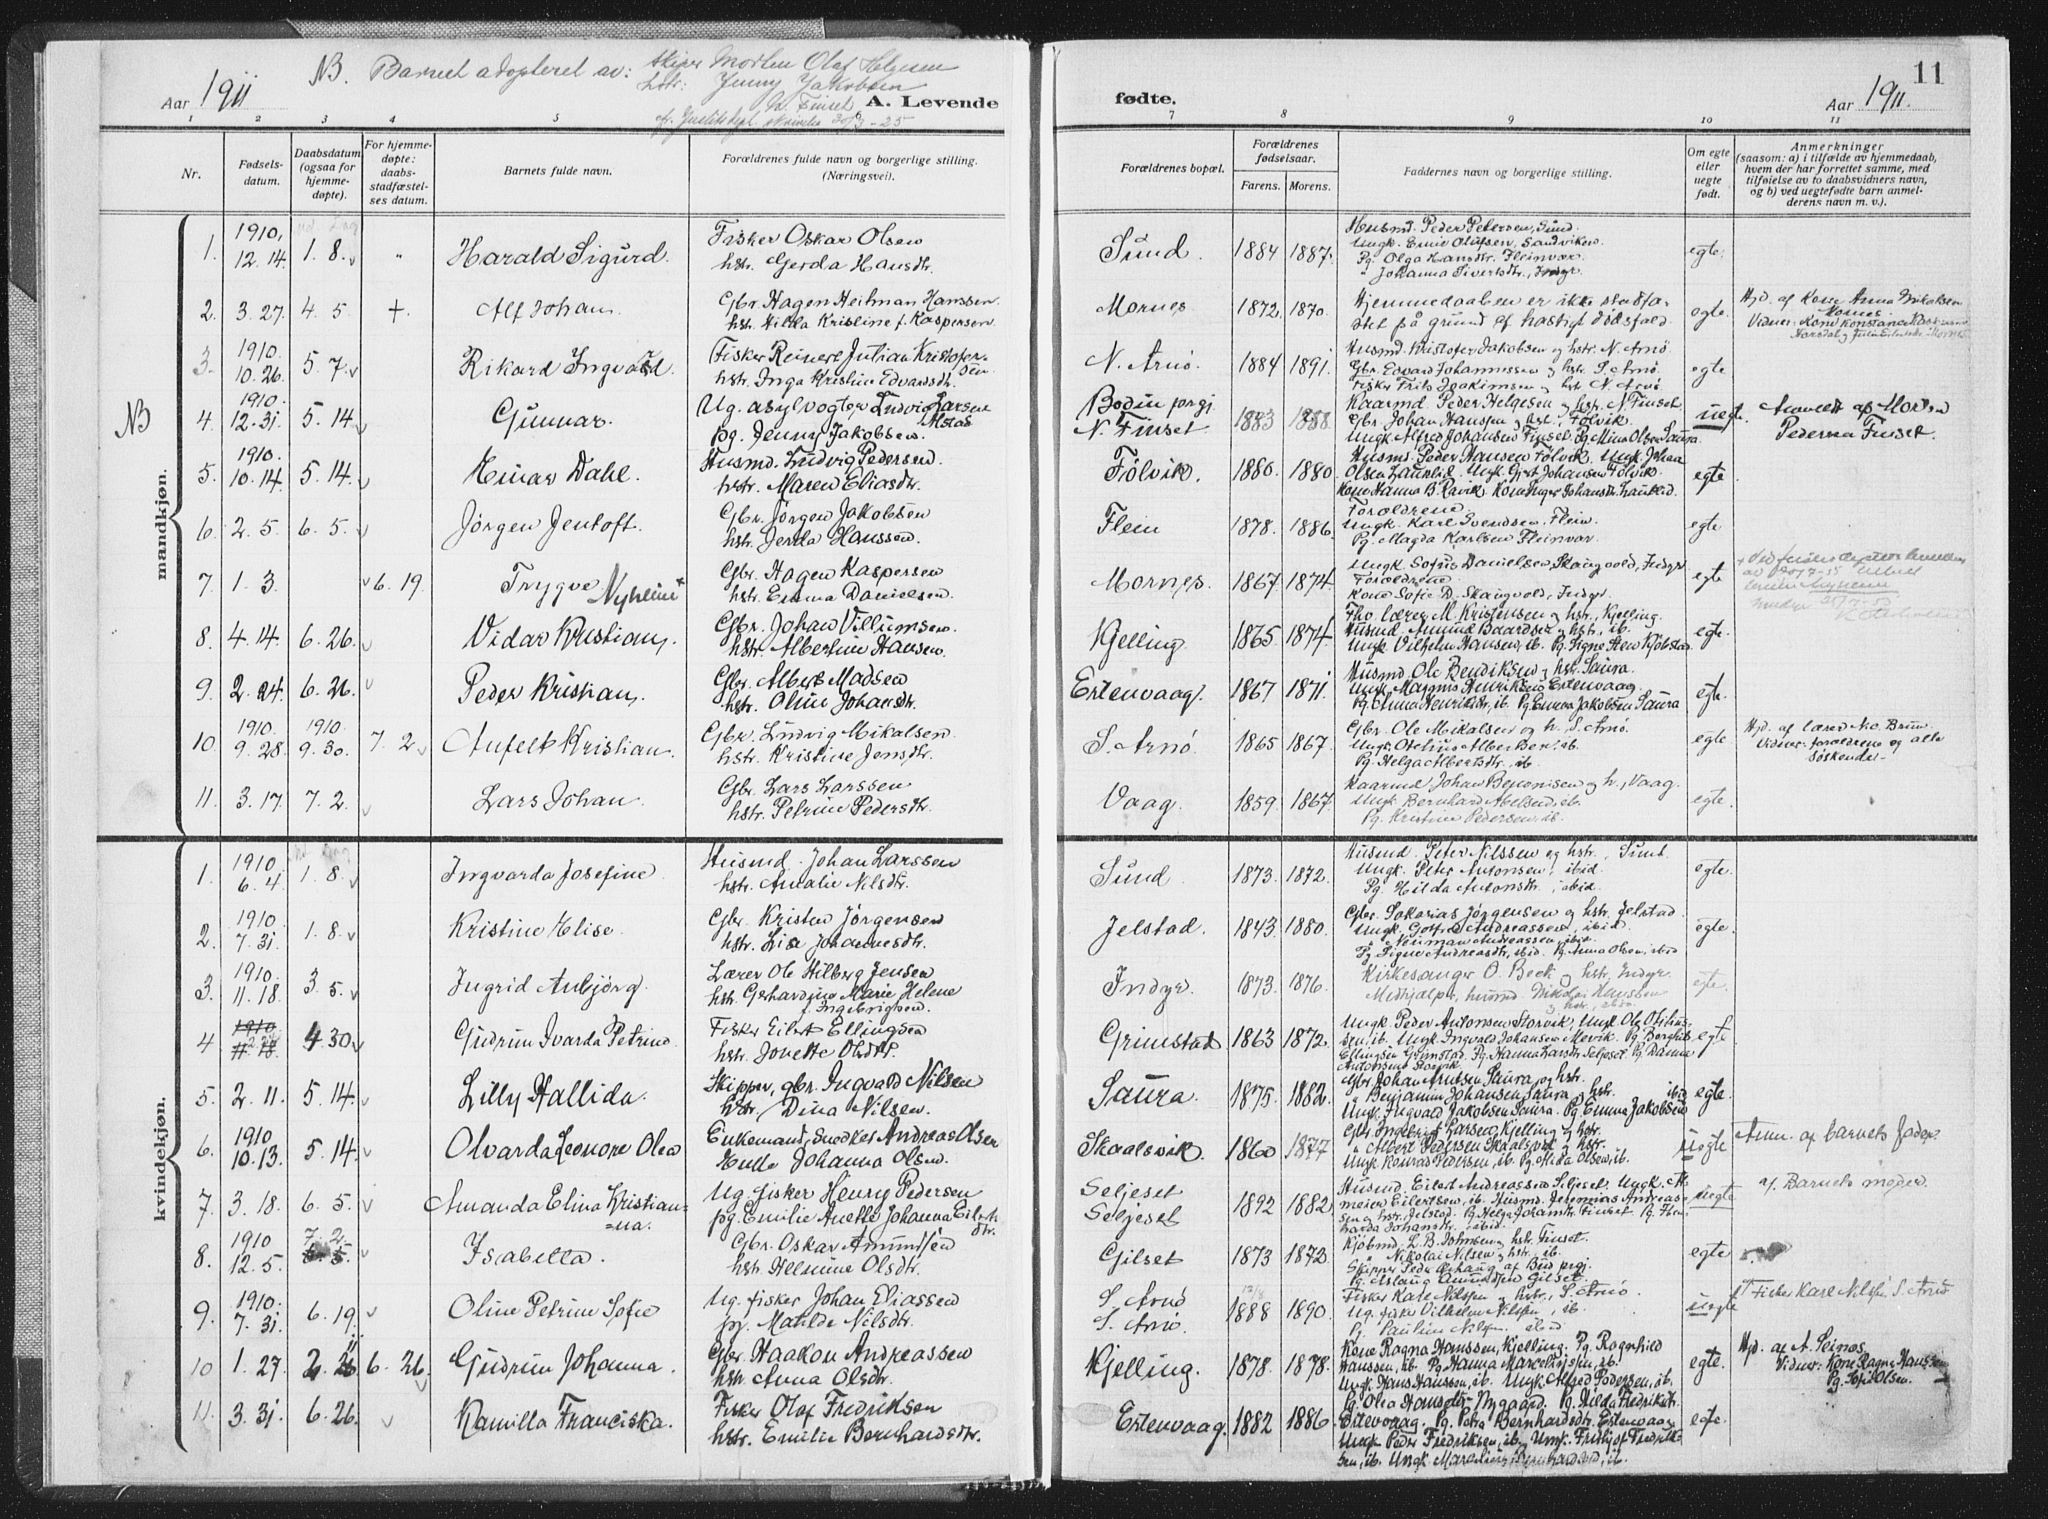 NB. Barnet adopteret av: skiper Morten Olaf Helgesen
hstr: Jenny Jakobsen
N. Finset
cfr. Justitsdept. skrivelse 20/3-25
Aar 1911
A. Levende
1 2 3 4 5 6
Nr.
Fødsels-
datum.
Daabsdatum
(ogsaa for
hjemme-
døpte).
For hjemme-
døpte:
daabs-
stadfæstel-
ses datum.
Barnets fulde navn.
Forældrenes fulde navn og borgerlige stilling.
(Næringsvei).
mandkjøn.
1. 1910, 12.14. 1.8. " Harald Sigurd.
Fisker Oskar Olsen
hstr. Gerda Hansdtr.
2. 3.27. 4.5 +. Alf Johan
Gbr. Hagen Heitman Hanssen
hstr. Hilka Kristine f. Kaspersen
3. 1910. 10.26. 5.7. Rikard Ingvald
Fisker Reinert Julian Kristofer-
sen
hstr. Inga Kristine Edvardsdtr.
NB 4. 1910. 12.31. 5.14 Gunnar.
Ug. asylvogter Ludvig Larsen
Alstad
pg. Jenny Jakobsen.
5. 1910. 10.14. 5.14. Einar Dahl.
Husmd. Ludvig Pedersen.
hstr. Maren Eliasdtr.
6. 2.5. 6.5. Jørgen Jentoft.
Gbr. Jørgen Jakobsen
hstr. Jerda Hanssen.
7. 1.3. 6.19. Trygve Nyheim +
Gbr. Hagen Kaspersen
hstr. Emma Danielsen.
8. 4.14. 6.26. Vidar Kristian.
Gbr. Johan Villumsen.
hstr. Albertine Hansen.
9. 2.24. 6.26. Peder Kristian.
Gbr. Albert Madsen
hstr. Oline Johansdtr.
10. 1910. 9.28. 1910. 9.30. 7.2. Anfelt Kristian.
Gbr. Ludvig Mikalsen.
hstr. Kristine Jensdtr.
11. 3.17. 7.2. Lars Johan.
Gbr. Lars Larssen
hstr. Petrine Pedersdtr.
kvindekjøn.
1. 1910. 6.4. 1.8. Ingvarda Josefine.
Husmd. Johan Larssen
hstr. Amalie Nilsdtr.
2. 1910. 7.31. 1.8. Kristine Elise.
Gbr. Kristen Jørgensen
hstr. Lise Johannesdtr.
3. 1910. 11.18. 3.5. Ingrid Anbjörg.
Lærer Ole Hilberg Jensen
hstr. Gerhardine Marie Helene
f. Ingebrigtsen.
4. 1910 11.18 4.30 Gudrun Ivarda Petrine.
Fisker Eilert Ellingsen
hstr. Jonette Olsdtr.
5. 2.11. 5.14. Lilly Hallida.
Skipper, gbr. Ingvald Nilsen
hstr. Dina Nilsen.
6. 1910. 10.13. 5.14. Olvarda Leonore Olea
Enkemand, Snedker Andreas Olsen
Johanna Olsen.
7. 3.18. 6.5. Amanda Elina Kristian-
=na.
Ug. fisker Henry Pedersen
pg. Emilie Anette Johanna Eilerts
dtr.
8. 1910 12.5. 7.2. Isabella.
Gbr. Oskar Amundsen
hstr. Helmine Olsdtr.
9. 1910. 7.31. 6.19. Oline Petrine Sofie
Ug. fisker Johan Eliassen
pg. Matilde Nilsdtr.
10 1.27. 6.26. Gudrun Johanna.
Gbr. Haakon Andreassen
hstr. Anna Olsdtr.
11. 3.31. 6.26. Kamilla Franciska.
Fisker Olaf Fredriksen
hstr. Emilie Bernhardsdtr.
11
fødte.
Aar 1911.
7 8 9 10 11
Forældrenes bopæl.
Forældrenes
fødselsaar.
Farens. Morens.
Faddernes navn og borgerlige stilling.
Om egte
eller
uegte
født.
Anmerkninger
(saasom: a) i tilfælde av hjemmedaab,
hvem der har forrettet samme, med
tilføielse av to daabsvidners navn,
og b) ved uegtefødte barn anmel-
derens navn m. v.).
Sund. 1884 1887. egte.
Husmd. Peder Petersen, Sund.
Ungk. Emie Olufsen, Sandviken.
Pg. Olga Hansdtr. Fleinvær.
" Johanna Sivertsdtr., Indyr.
Mornes 1872. 1870. egte.
Hjemmedaaben er ikke stadfæ-
stet på grund af hastigt dødsfald.
Hjd. af kone Anna Mikalsen
Mornes.
N. Arnö. 1884 1891. egte
Husmd. Kristofer Jakobsen og hstr. N. Arnö.
Gbr. Edvard Johannessen og hstr. S. Arnö.
Fisker Frits Joakimsen og hstr. N. Arnö.
Bodin prgj.
N. Finset. 1883 1888. uegte.
Kaarmd. Peder Helgesen og hstr. N. Finset
Gbr. Johan Hanssen og hst., Fölvik.
Ungk. Alfred Johansen Finset. Pg. Mina Olsen Saura.
Anmeldt af Morten
Pedersen Finset.
Fölvik. 1880. 1880. egte
Husmd. Peder Hansen Fölvik. Ungk. Johan
Olsen Laukli. Ungk. Gert Johansen Fölvik.
Kone Hanna B. Ravik. Kone Inger Johansdtr. Lauklid.
Flein 1878. 1886. egte
Forældrene
Ungk. Karl Svendsen, Flein.
Pg. Magda Karlsen Fleinvær.
Mornes. 1867. 1874. egte
Ungk. Sofus Danielsen Skaugvold, Indyr
Forældrene
Kone Sofie D. Skaugvold, Indyr.
Kjelling 1865. 1874. egte.
Fho. lærer M. Kristensen og hstr., Kjelling.
Husmd. Amund Baardsen og hstr., ib.
Ungk. Vilhelm Hansen, ib. Pg. Signe Steen Kjöbstad.
Estenvaag. 1867 1871. egte.
Husmd Ole Bendiksen og hstr. Saura.
Ungk. Magnus Henriksen Estenvaag.
Pg. Anna Henriksdtr., ib. Pg. Emma Jakobsen Saura
S. Arnö 1865 1867. egte
Gbr. Ole Mikalsen og h. S. Arnö.
Ungk. Otelius Albertsen, ib.
Pg. Helga Albertsdtr., ib.
Hjd. af lærer Nic. Bruun.
Vidner: forældrene og alle
söskende.
Vaag. 1859. 1867. egte.
Kaarmd Johan Benonisen og h., Vaag.
Ungk. Bernhard Abelsen, ib.
Pg. Kristine Pedersen, ib.
Sund 1873. 1872. egte.
Husmd. Peter Nilssen og hstr., Sund.
Ungk. Peter Antonsen, ibid.
Pg. Hilda Antonsdtr., ibid.
Jelstad. 1843 1880. egte.
Gbr. Sakarias Jörgensen og hstr. Jelstad
Ungk. Gotfred Andreassen, ibid.
" Neuman Andreassen, ibid.
Pg. Signe Andreasdtr., ibid. Pg. Anna Olsen, ibid
Indyr. 1873. 1876. egte.
Kirkesanger O. Beck og hstr, Indyr.
Medhjælper, husmd. Nikolai Hanssen
og hstr. ibid.
Grimstad 1863 1872. egte.
Ungk. Peder Antonsen Storvik, Ungk. Ole Otelius-
sen, ib. Ungk. Ingvald Johansen Mevik. Pg. Borghild
Ellingsen Grimstad. Pg. Hanna Larsdtr. Seljeset. Pg. Danna
Antonsen Storvik
Saura. 1875. 1882. egte.
Gbr. Johan Arntsen Saura og hstr.
" Benjamin Johansen Saura og hstr. ibid
Ungk. Ingvald Jakobsen Saura. Pg. Emma Jakobsen
Skaalsvik. 1860 1877 uegte
Gbr. Ingebrigt Larsen, Kjelling og hstr.
" Albert Pedersen Skaalsvik og hstr.
Ungk. Konrad Pedersen, ib. Pg. Alida Olsen, ib.
Anm. af barnets fader.
Seljeset
Seljeset 1892 1882. uegte
Husmd. Eilert Andreassen Seljeset. Ungk. Al-
meier Eilertsen, ib. Husmd. Jeremias Andreas-
sen og hstr. Jelstad. Pg. Helga Johansdtr. Finset. Pg.
Johansdtr. ibid.
af Barnets moder.
Gilset 1873 1872. egte
Kjöbmd. L. B. Johnsen og hstr. Finset.
" Nikolai Nilsen og hstr., ib.
Skipper Peder af Bud prgj.
Pg. Aslaug Amundsen Gilset.
S. Arnö
S. Arnö. 12/8 1888 1890. uegte
Fisker Karl Nilssen og hstr., S. Arnö.
Ug. fisker Vilhelm Nilssen, ib.
Pg. Pauline Nilssen ibid
Fisker Karl Nilssen S. Arnö
Kjelling. 1878. 1878. egte.
Kone Ragna Hanssen, Kjelling. Pg. Ragnhild
Hanssen, ib. Pg. Hanna Marceliussen, ib.
Ungk. Hans Hanssen, ib. Ungk. Alfred Pedersen, ib.
Hjd. af A. Seines
Vidner: Kone Ragna Hanssen
Pg. Sofie Olsen.
Estenvaag. 1882 1886. egte.
Pg. Olea Hansdtr. Nygaard. Pg. Hilda Fredriksdtr.
Estenvaag. Pg. Petra Bernhardsdtr. Estenvaag
Ungk. Peder Fredriksen, ib. og Ungk. Fridtjof Fredrik-
sen, ib. Ungk. Marcelius Bernhardsen, ib.